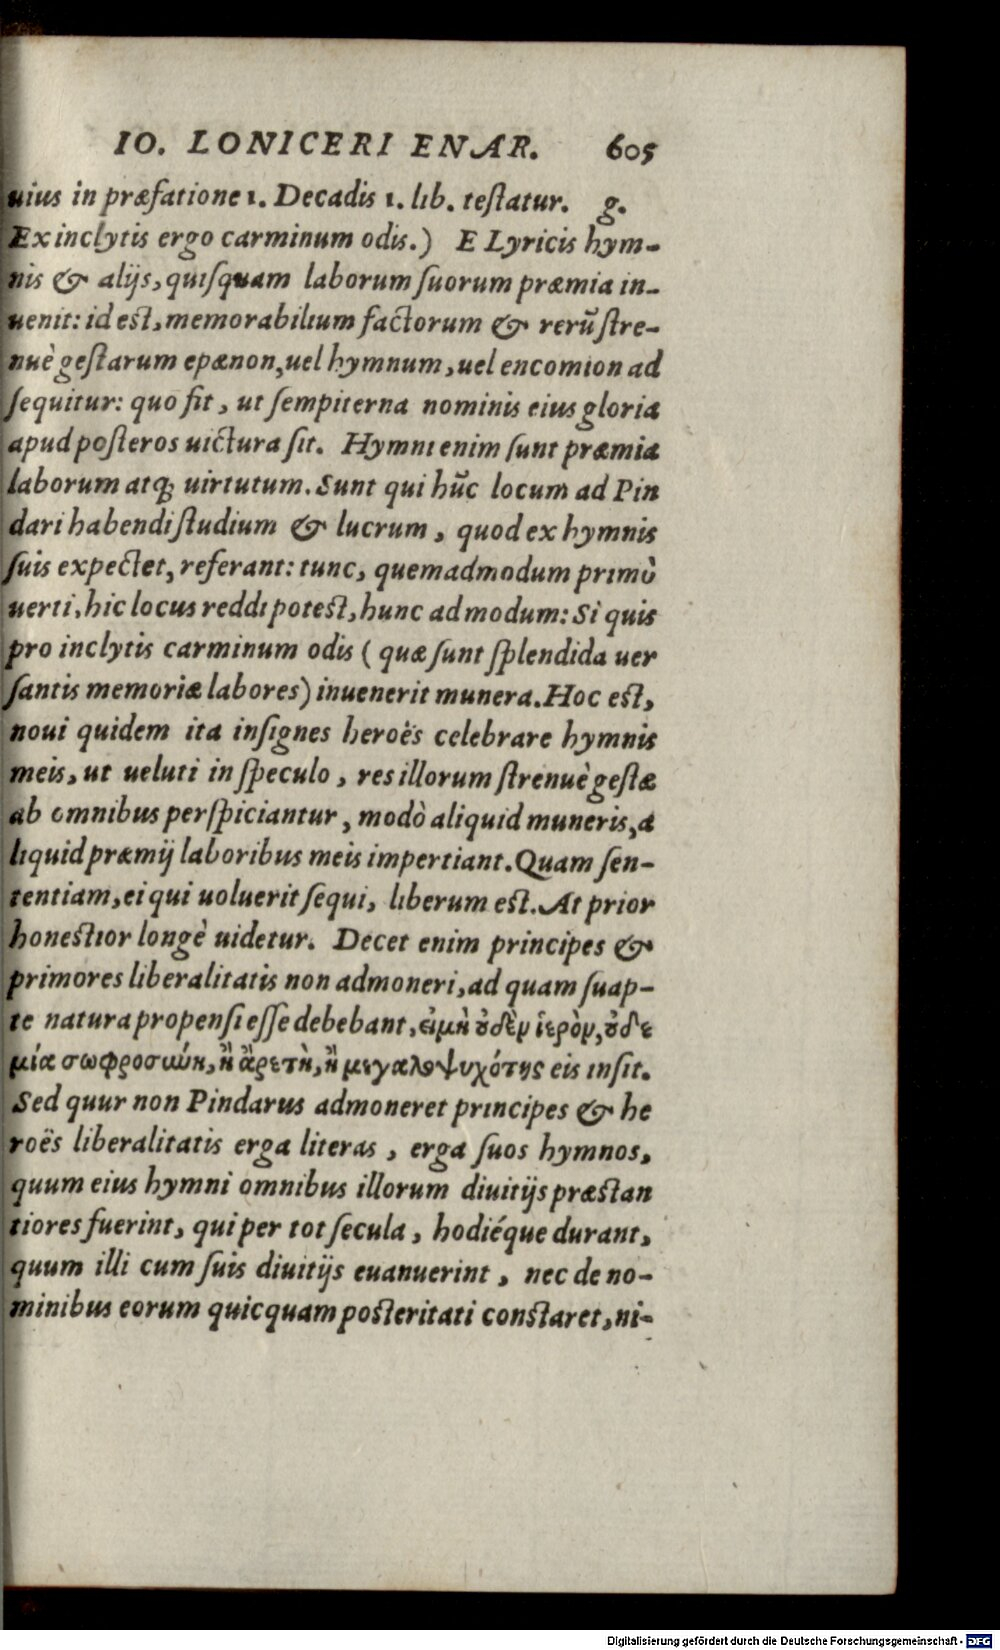 IO. LONICERI ENAR. 605
uius in præfatione 1. Decadis 1. lib. teſtatur. g.
Ex inclytis ergo carminum odis.) E Lyricis hym-
nis & alijs, quiſquam laborum ſuorum præmia in-
uenit: id eſt, memorabilium factorum & rerũ ſtre-
nuè geſtarum epænon, uel hymnum, uel encomion ad
ſequitur: quo fit, ut ſempiterna nominis eius gloria
apud poſteros uictura ſit. Hymni enim ſunt præmia
laborum atq; uirtutum. Sunt qui hũc locum ad Pin
dari habendi ſtudium & lucrum, quod ex hymnis
ſuis expectet, referant: tunc, quemadmodum primò
uerti, hic locus reddi poteſt, hunc ad modum: Si quis
pro inclytis carminum odis ( quæ ſunt ſplendida uer
ſantis memoriæ labores) inuenerit munera. Hoc eſt,
noui quidem ita inſignes heroës celebrare hymnis
meis, ut ueluti in ſpeculo, res illorum ſtrenuè geſtæ
ab omnibus perſpiciantur, modò aliquid muneris, a
liquid præmij laboribus meis impertiant. Quam ſen-
tentiam, ei qui uoluerit ſequi, liberum eſt. At prior
honeſtior longè uidetur. Decet enim principes &
primores liberalitatis non admoneri, ad quam ſuap-
te natura propenſi eſſe debebant, εἰ μὴ ὀδὲν ἱερὸν, ὀδε
μία σωφροσύνη, ἢ ἄρετὴ, ἢ μεγαλοψυχότης eis inſit.
Sed quur non Pindarus admoneret principes & he
roës liberalitatis erga literas, erga ſuos hymnos,
quum eius hymni omnibus illorum diuitijs præſtan
tiores fuerint, qui per tot ſecula, hodiéque durant,
quum illi cum ſuis diuitijs euanuerint, nec de no-
minibus eorum quicquam poſteritati conſtaret, ni-
Digitalisierung gefördert durch die Deutsche Forschungsgemeinschaft - DFG